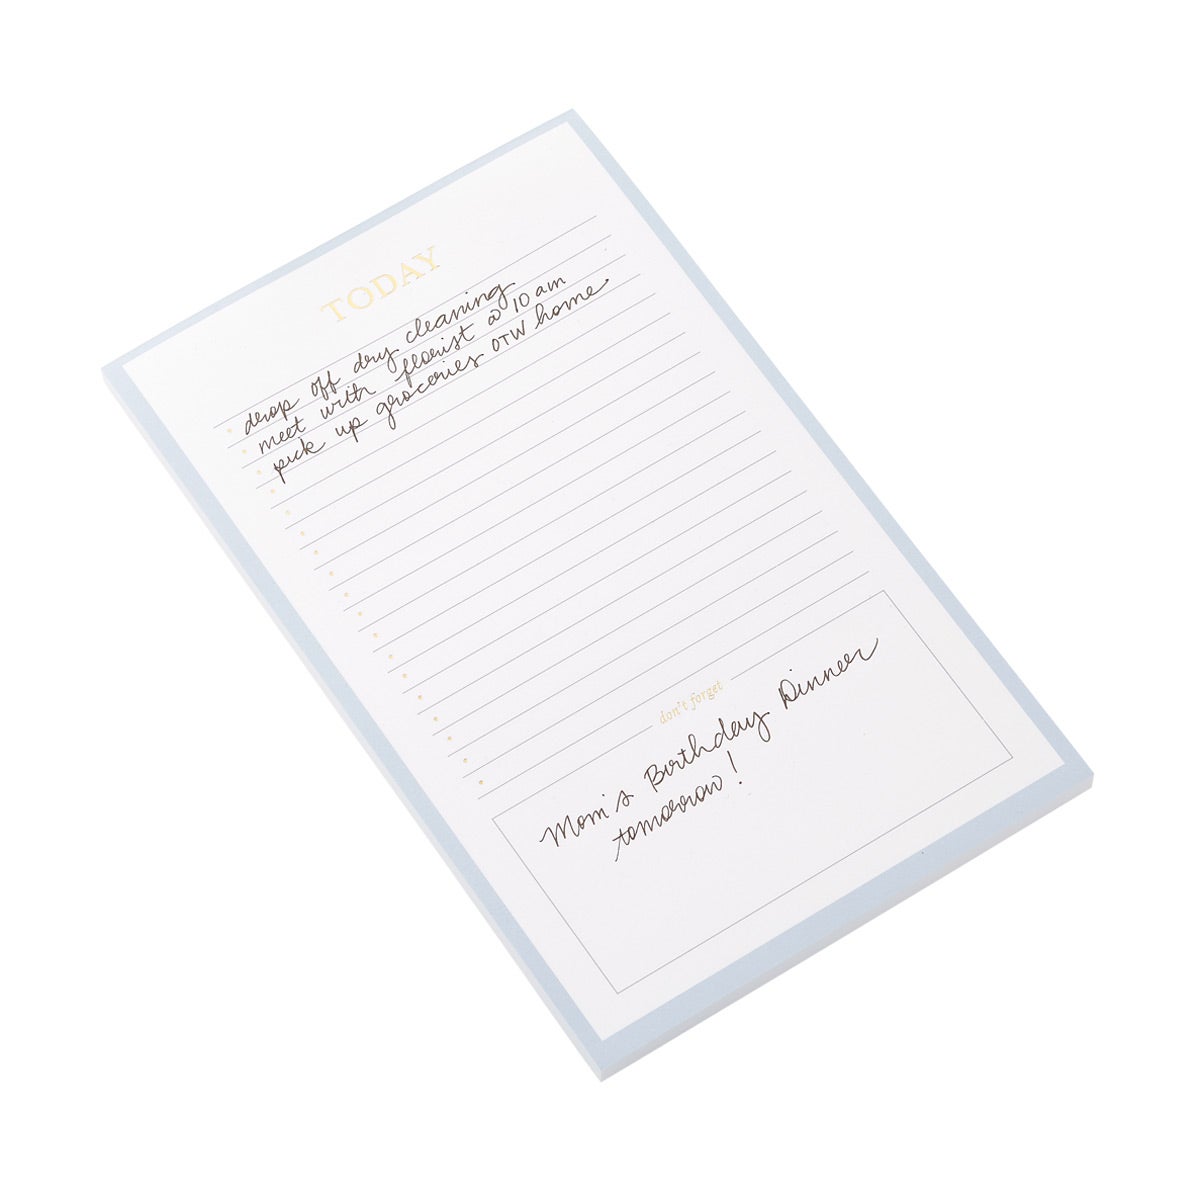 TODAY
drop off dry cleaning
meet with florist @ 10 am
pick up groceries OTW home.
don't forget
Mom's Birthday Dinner
tomorrow!